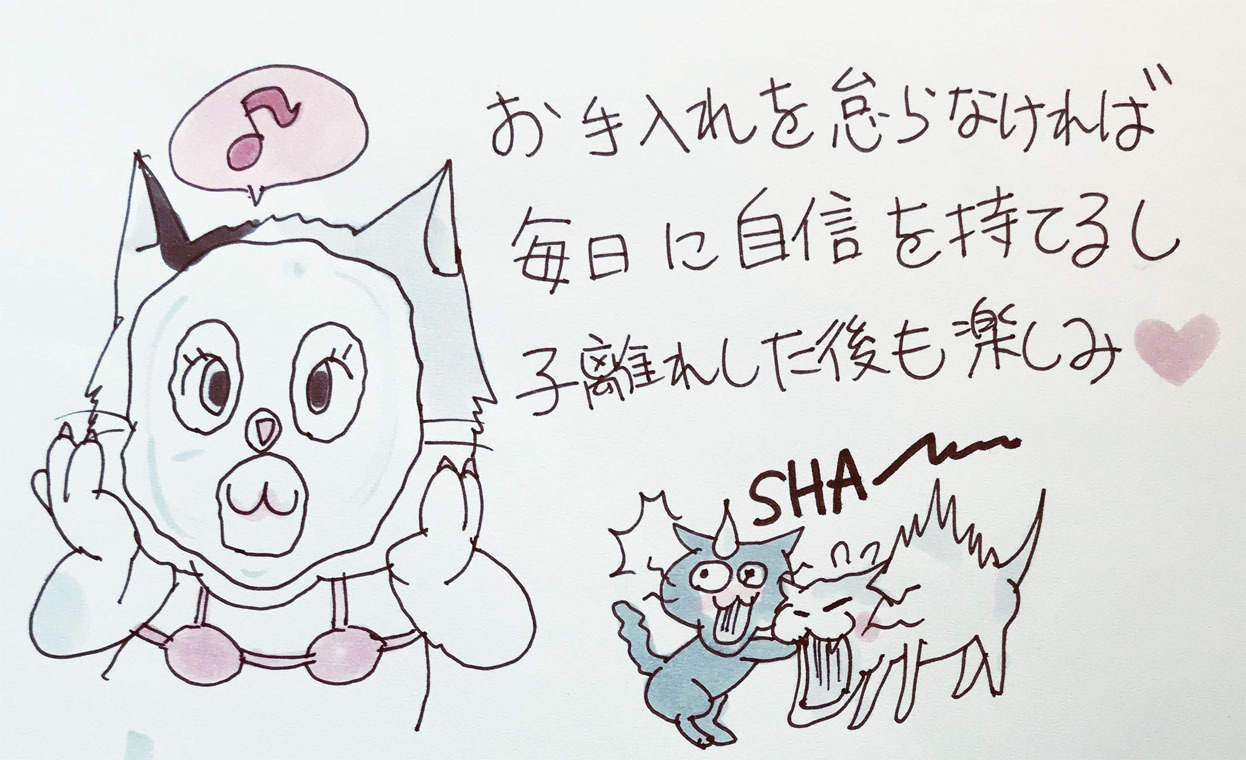 お手入れを怠らなければ
毎日に自信を持てるし
子離れした後も楽しみ
SHA